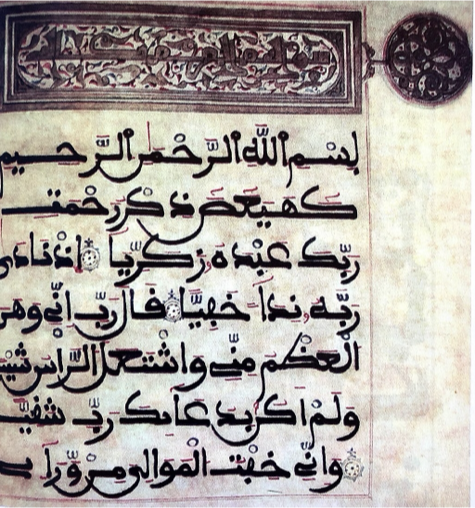 بِسْمِ اللَّهِ الرَّحْمَٰنِ الرَّحِيمِ
كهيعص ذِكْرُ رَحْمَتِ
رَبِّكَ عَبْدَهُ زَكَرِيَّا إِذْ نَادَى
رَبَّهُ نِدَاءً خَفِيًّا قَالَ رَبِّ إِنِّي وَهَنَ
الْعَظْمُ مِنِّي وَاشْتَعَلَ الرَّأْسُ شَيْبًا
وَلَمْ أَكُنْ بِدُعَائِكَ رَبِّ شَقِيًّا
وَإِنِّي خِفْتُ الْمَوَالِيَ مِنْ وَرَاءِي